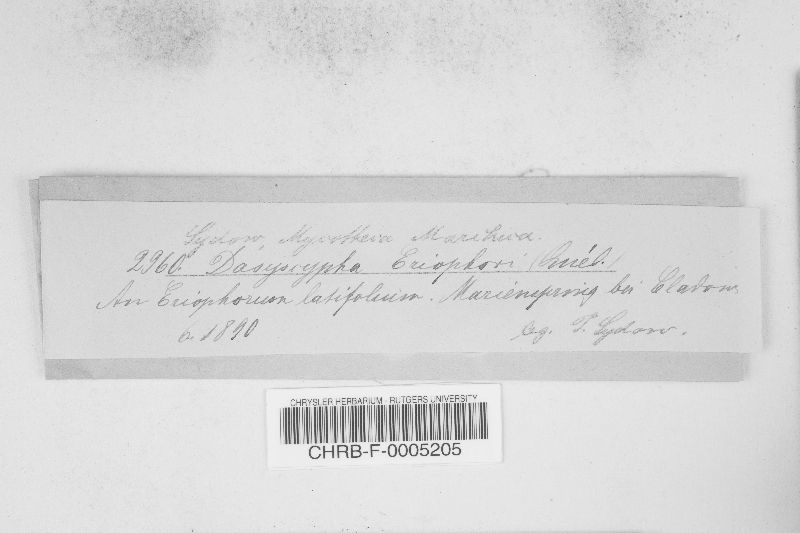 Sydow, Mycotheca Marchica.
2960. Dasyscypha Eriophori (Quél.)
An Eriophorum latifolium. Marienspring bei Cladow
6. 1890 leg. P. Sydow.
CHRYSLER HERBARIUM - RUTGERS UNIVERSITY
CHRB-F-0005205